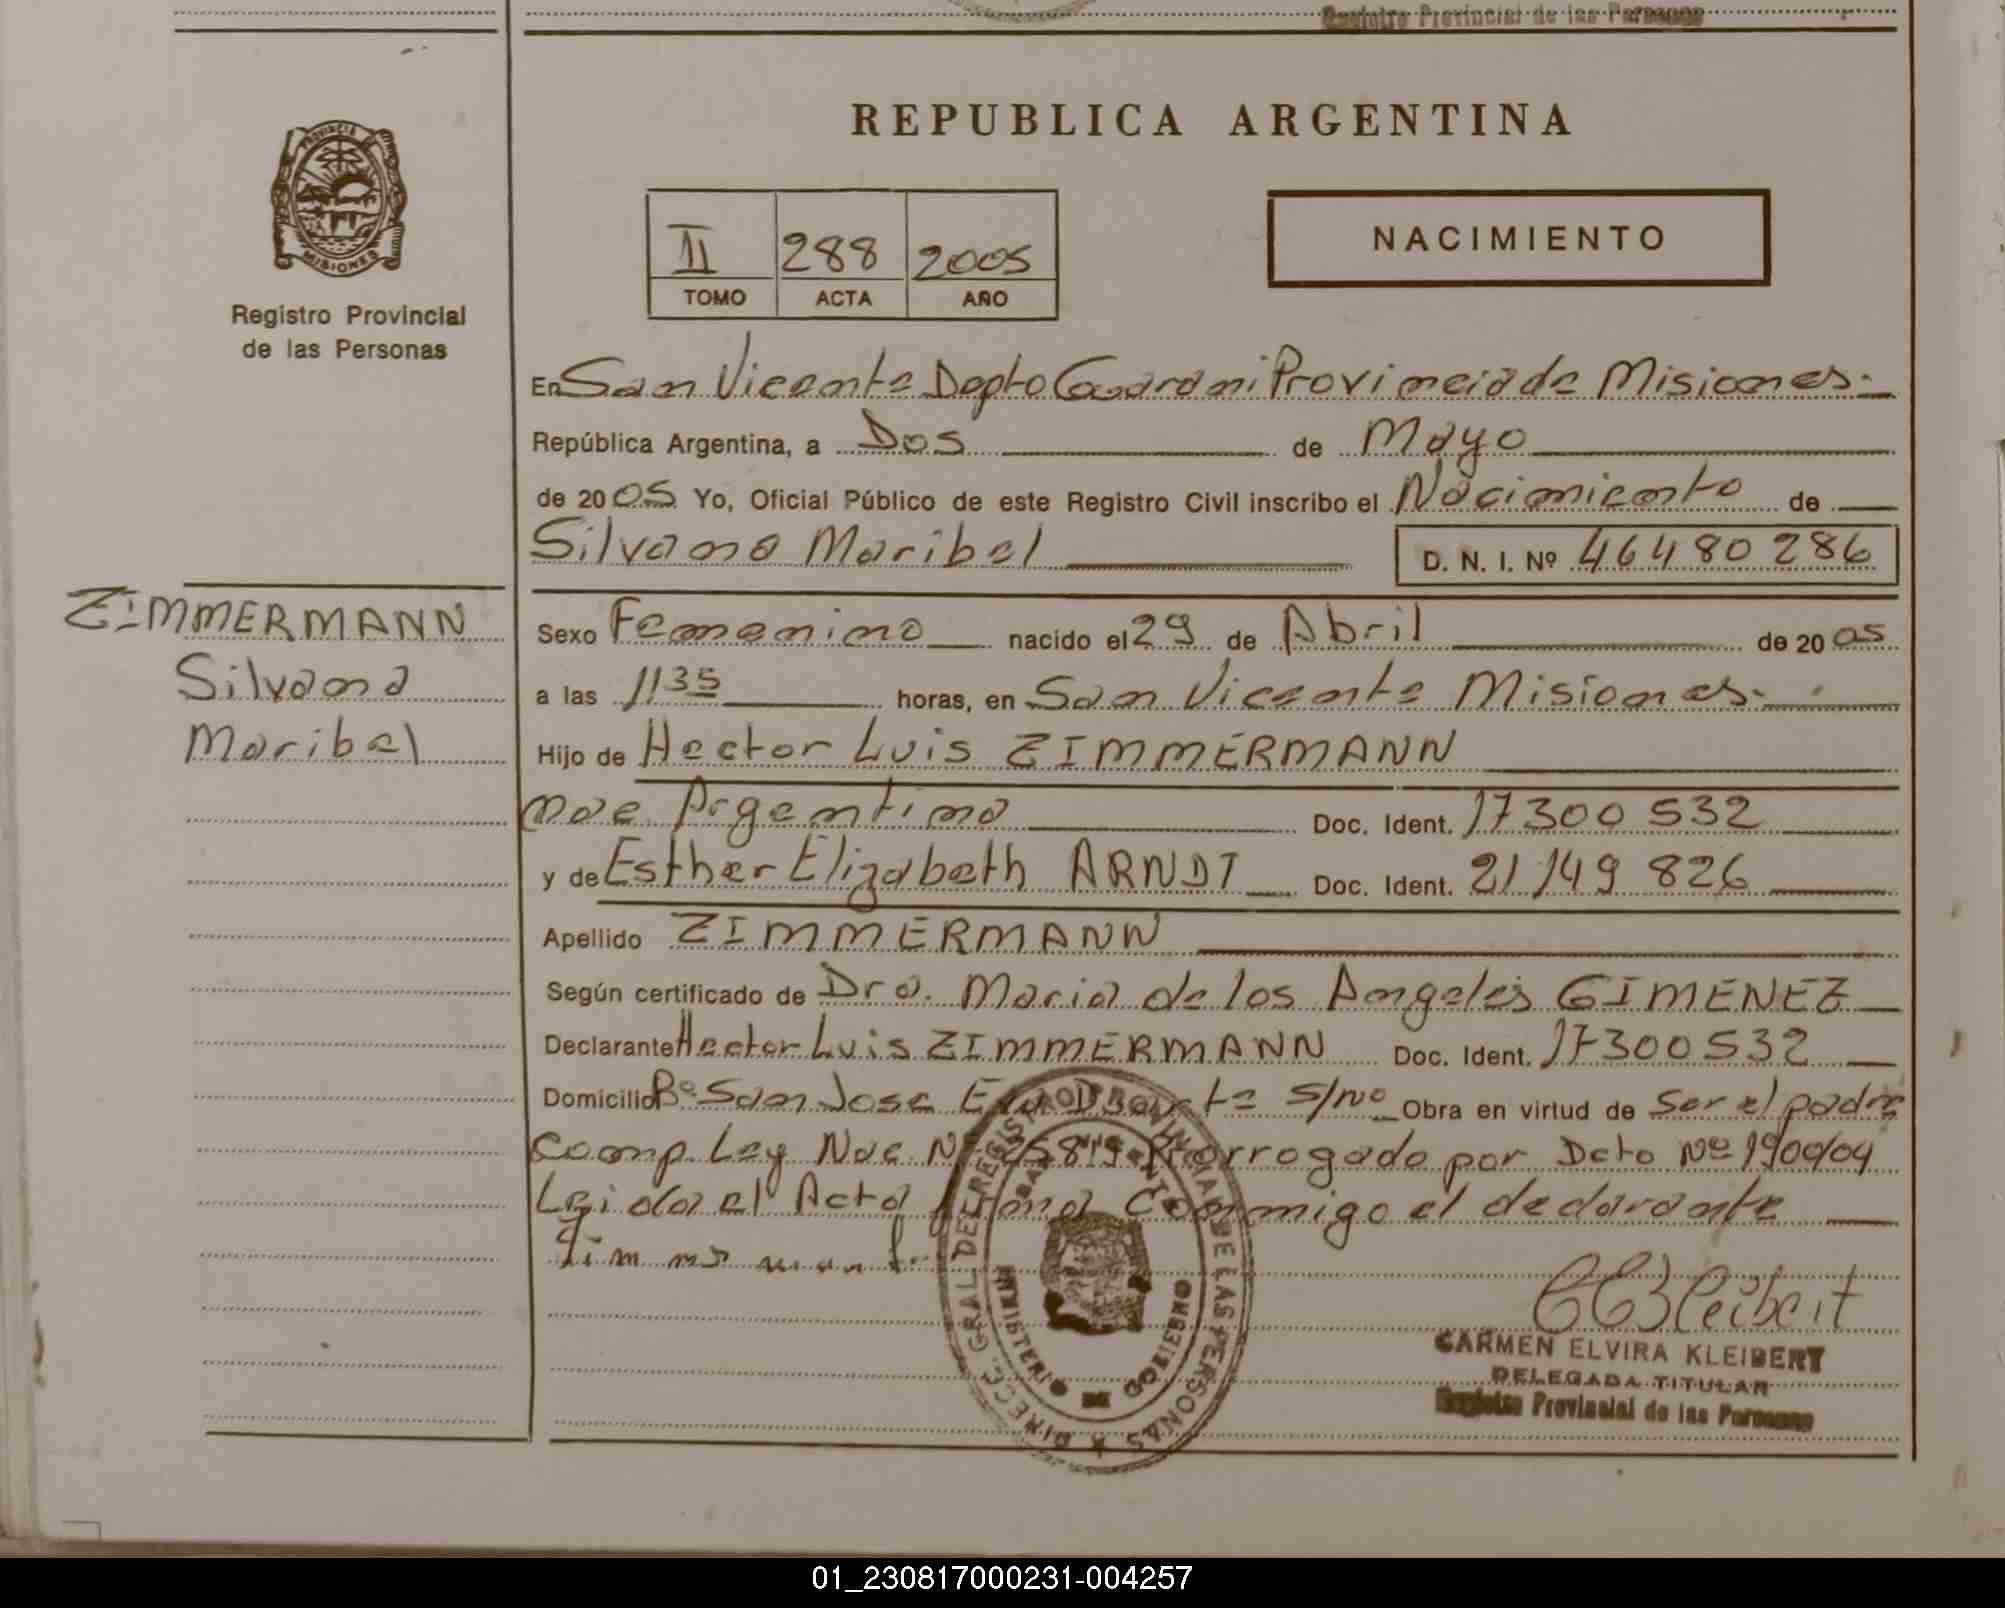 Registro Provincial de las Personas
REPUBLICA ARGENTINA
PROVINCIA DE
MISIONES
Registro Provincial
de las Personas
II 288 2005
TOMO ACTA AÑO
NACIMIENTO
En San Vicente Depto Guarani Provincia de Misiones.
República Argentina, a Dos de Mayo
de 2005 Yo, Oficial Público de este Registro Civil inscribo el Nacimiento de
Silvana Maribel D. N. I. Nº 46480286
ZIMMERMANN
Silvana
Maribel
Sexo Femenino nacido el 29 de Abril de 2005
a las 1135 horas, en San Vicente Misiones.
Hijo de Hector Luis ZIMMERMANN
nac Argentina Doc. Ident. 17300 532
y de Esther Elizabeth ARNDT Doc. Ident. 21 149 826
Apellido ZIMMERMANN
Según certificado de Dra. Maria de los Angeles GIMENEZ
Declarante Hector Luis ZIMMERMANN Doc. Ident. 17300532
Domicilio Bº San Jose s/nº Obra en virtud de Ser el padre
Comp. Ley Nac. Nº 25819 Prorrogado por Dcto Nº 1900/04
Leida el Acta firma Conmigo el declarante
DIRECC. GRAL. DEL REGISTRO PROVINCIAL DE LAS PERSONAS
MINISTERIO DE GOBIERNO
CARMEN ELVIRA KLEIBERT
DELEGADA TITULAR
Registro Provincial de las Personas
01_230817000231-004257